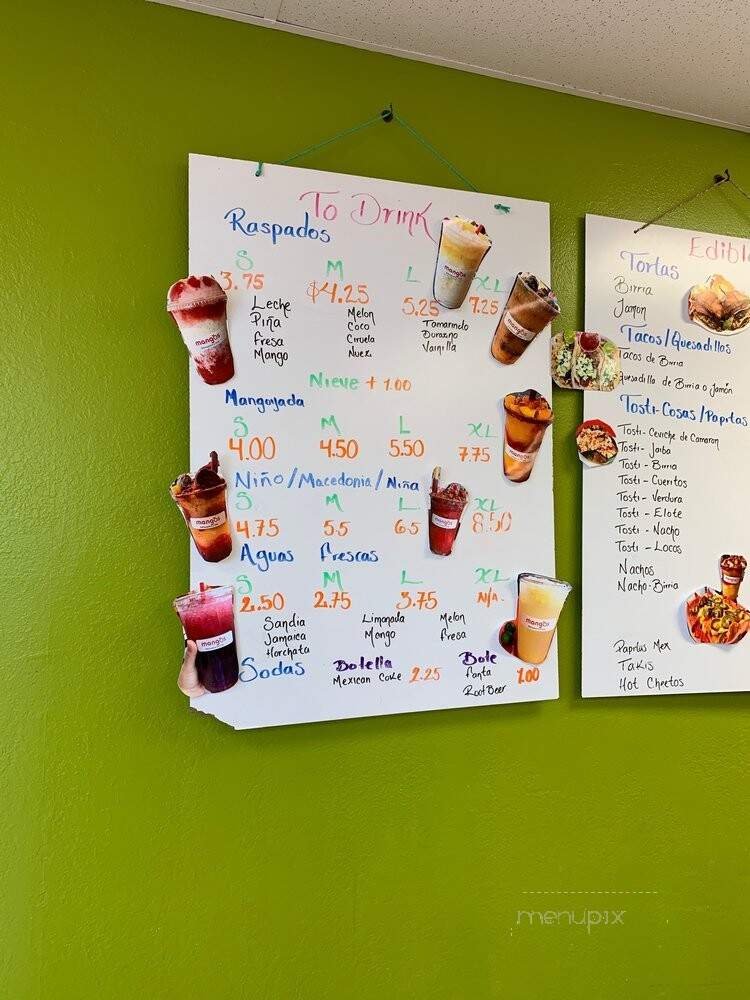 To Drink
Raspados
S M L XL
3.75 $4.25 5.25 7.25
Leche Melon Tamarindo
Piña Coco Durazno
Fresa Ciruela Vainilla
Mango Nuez
Nieve + 1.00
Mangoyada
S M L XL
4.00 4.50 5.50 7.75
Niño/Macedonia/Niña
S M L XL
4.75 5.5 6.5 8.50
Aguas Frescas
S M L XL
2.50 2.75 3.75 N/A.
Sandia Limonada Melon
Jamaica Mango Fresa
Horchata
Sodas Botella Bote
Mexican Coke 2.25 Fanta 1.00
Root Beer
mangos
mangos
mangos
mangos
mangos
mangos
mangos
Tortas
Birria
Jamon
Tacos/Quesadillas
Tacos de Birria
Quesadilla de Birria o Jamón
Tosti-Cosas/Papitas
Tosti-Ceviche de Camaron
Tosti-Jaiba
Tosti-Birria
Tosti-Cueritos
Tosti-Verdura
Tosti-Elote
Tosti-Nacho
Tosti-Locos
Nachos
Nacho-Birria
Papitas Mex
Takis
Hot Cheetos
menupix